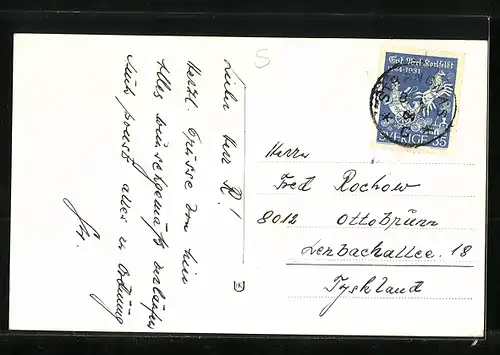 Lieber Herr R.!
Herzl. Grüsse von hier
Alles wunschgemäß verlaufen
Auto passt alles in Ordnung
S
Erik Axel Karlfeldt
1864-1931
SVERIGE 35
Herrn
Fred Rochow
8012 Ottobrunn
Lenbachallee. 18
Tyskland